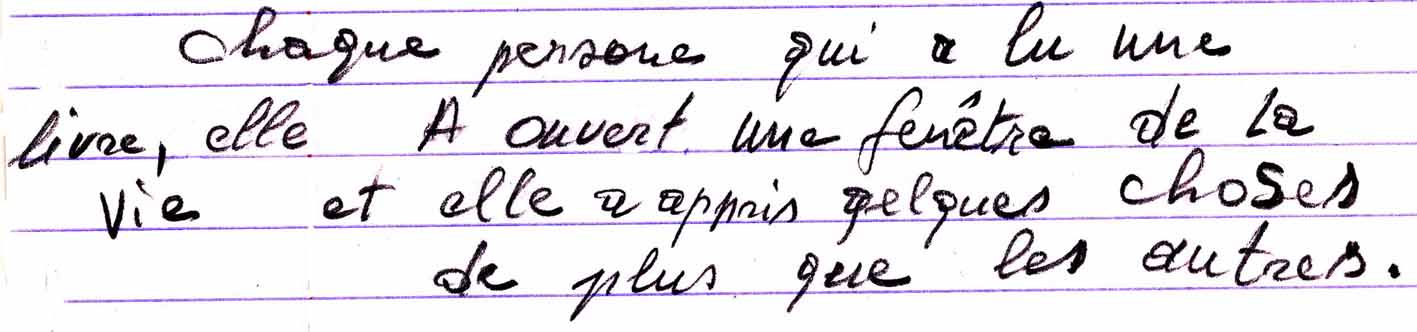 Chaque persone qui a lu une
livre, elle A ouvert une fenêtre de la
vie et elle a appris qelques choses
de plus que les autres.